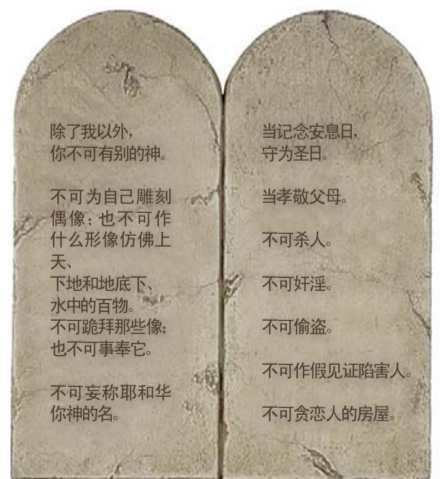 除了我以外，
你不可有别的神。
不可为自己雕刻
偶像；也不可作
什么形像仿佛上
天、
下地和地底下、
水中的百物。
不可跪拜那些像；
也不可事奉它。
不可妄称耶和华
你神的名。
当记念安息日，
守为圣日。
当孝敬父母。
不可杀人。
不可奸淫。
不可偷盗。
不可作假见证陷害人。
不可贪恋人的房屋。